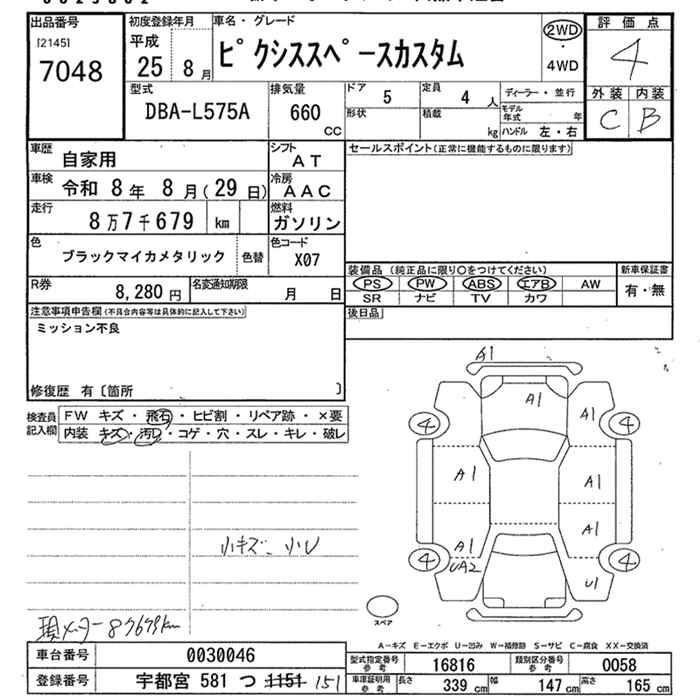 出品番号 初度登録年月 車名・グレード 2WD 評価点
[2145]
7048
平成
25 8月
ピクシススペースカスタム
4WD
4
型式 排気量 ドア 5 定員 4人 ディーラー・並行 外装 内装
DBA-L575A 660 CC 形状 積載 kg モデル年式 年 C B
ハンドル 左・右
車歴 自家用 シフト AT セールスポイント(正常に機能するものに限ります)
車検 令和 8年 8月(29日) 冷房 AAC
走行 8万7千679 km 燃料 ガソリン
色 ブラックマイカメタリック 色替 色コード X07
装備品 (純正品に限り○をつけてください) 新車保証書
PS PW ABS エアB AW 有・無
SR ナビ TV カワ
R券 8,280円 名変通知期限 月 日
後日品
注意事項申告欄(不具合内容等は具体的に記入して下さい)
ミッション不良
修復歴 有〔箇所 〕
検査員記入欄 FW キズ・飛石・ヒビ割・リペア跡・×要
内装 キズ・汚レ・コゲ・穴・スレ・キレ・破レ
A1
A1
4 A1 4
A1 A1
A1
A1
4 UA2 U1 4
小キズ、小U
現メーター87679km
スペア
A-キズ E-エクボ U-凹み W-補修跡 S-サビ C-腐食 XX-交換済
車台番号 0030046
型式指定番号 参考 16816 類別区分番号 参考 0058
登録番号 宇都宮 581 つ 1151 151
車庫証明用 参考 長さ 339 cm 幅 147 cm 高さ 165 cm